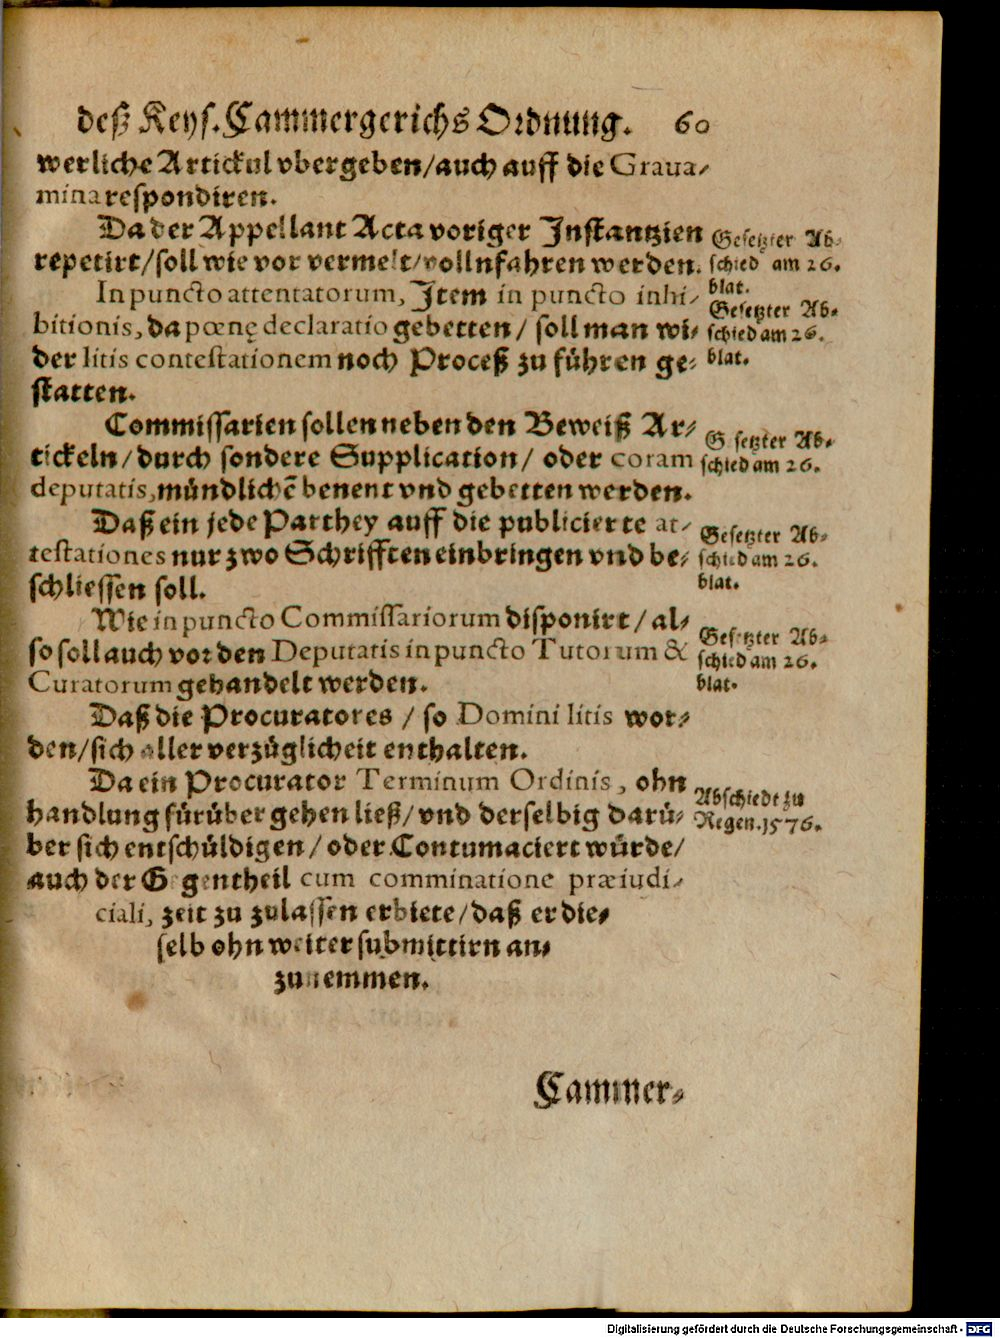 deß Keys. Cammergerichs Ordnung. 60
werliche Artickul vbergeben/auch auff die Graua-
mina respondiren.
Da der Appellant Acta voriger Instantzien
repetirt/soll wie vor vermelt/vollnfahren werden.
Gesetzter Ab-
schied am 26.
blat.
In puncto attentatorum, Item in puncto inhi-
bitionis, da pœnę declaratio gebetten/ soll man wi-
der litis contestationem noch Proceß zu führen ge-
statten.
Gesetzter Ab-
schied am 26.
blat.
Commissarien sollen neben den Beweiß Ar-
tickeln/durch sondere Supplication/ oder coram
deputatis, mündlichē benent vnd gebetten werden.
Gesetzter Ab-
schied am 26.
Daß ein jede Parthey auff die publicierte at-
testationes nur zwo Schrifften einbringen vnd be-
schliessen soll.
Gesetzter Ab-
schied am 26.
blat.
Wie in puncto Commissariorum disponirt/ al-
so soll auch vor den Deputatis in puncto Tutorum &
Curatorum gehandelt werden.
Gesetzter Ab-
schied am 26.
blat.
Daß die Procuratores / so Domini litis wor-
den/sich aller verzüglicheit enthalten.
Da ein Procurator Terminum Ordinis, ohn
handlung fürüber gehen ließ/vnd derselbig darü-
ber sich entschüldigen/oder Contumaciert würde/
auch der Gegentheil cum comminatione præiudi-
ciali, zeit zu zulassen erbiete/daß er die-
selb ohn weiter submittirn an-
zunemmen.
Abschiedt zu
Regen. 1576.
Cammer-
Digitalisierung gefördert durch die Deutsche Forschungsgemeinschaft - DFG